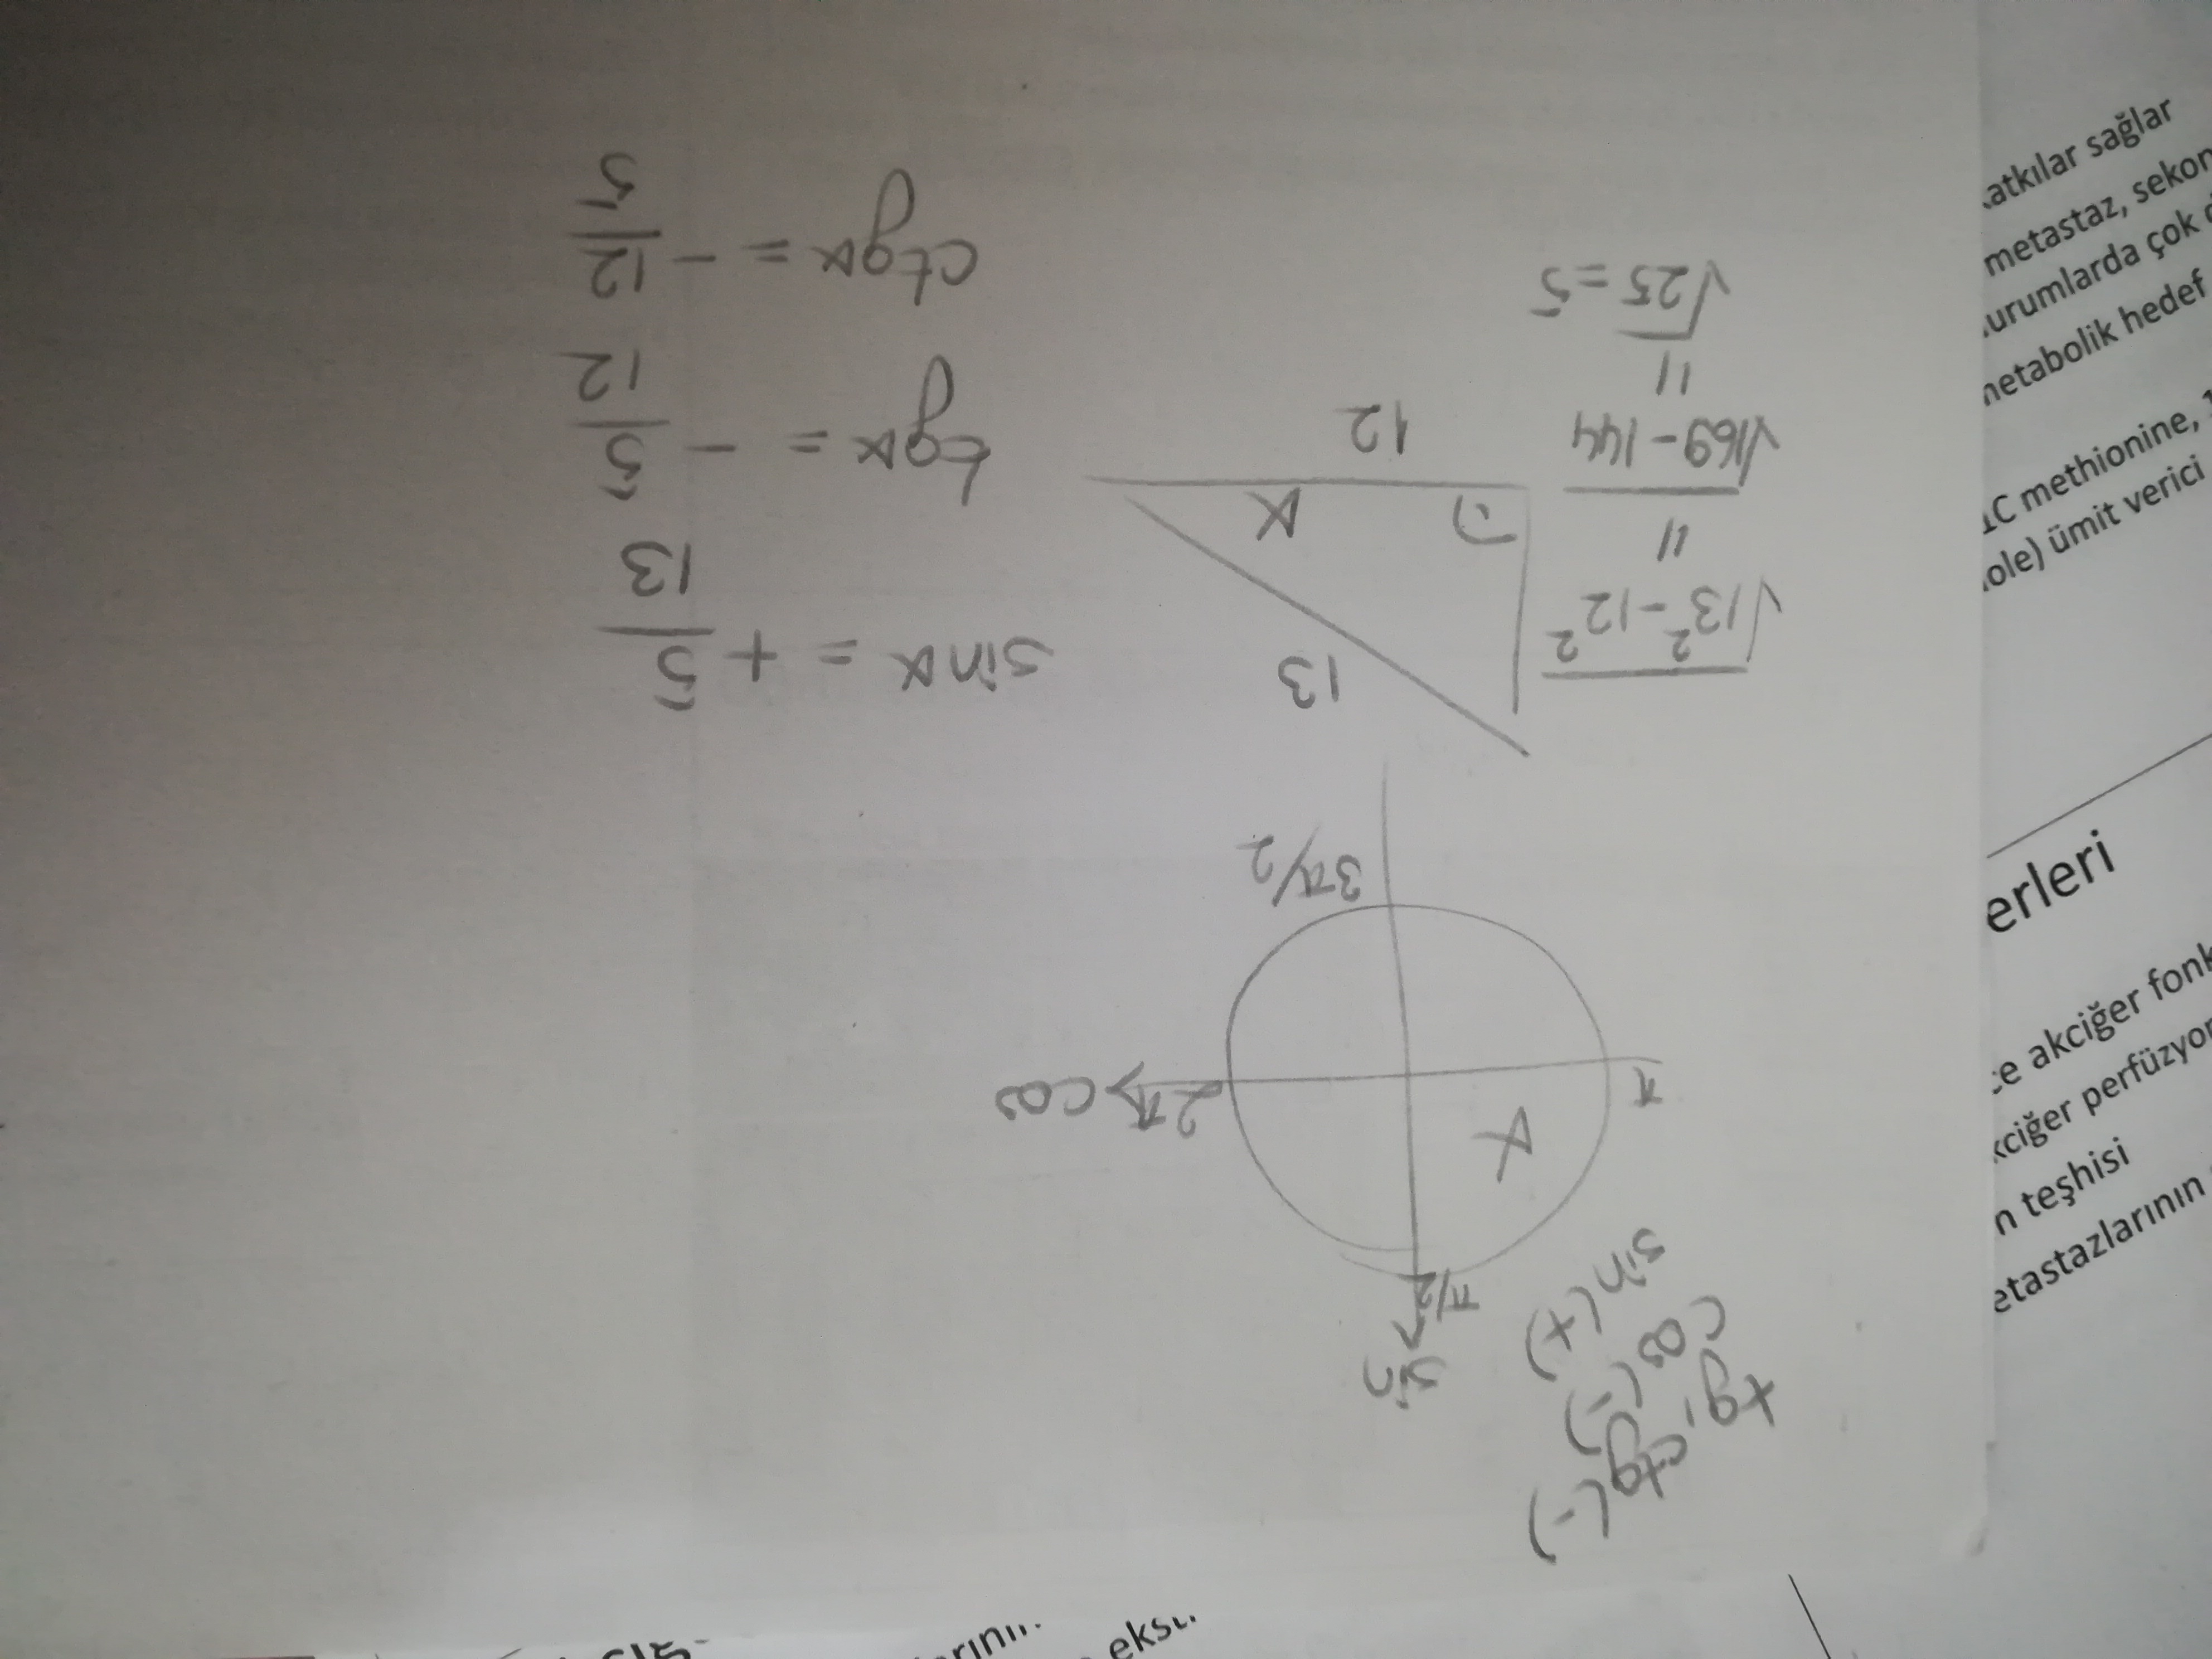 sin
π/2
sin(+)
cos(-)
tg,
ctg(-)
α
π
2π
cos
3π/2
√13²-12²
"
√169-144
"
√25=5
13
12
α
sinα = + 5/13
tgα = - 5/12
ctgα = - 12/5
atkılar sağlar
metastaz, sekon
urumlarda çok
metabolik hedef
1C methionine,
ole) ümit verici
erleri
e akciğer fonk
kciğer perfüzyon
n teşhisi
etastazlarının